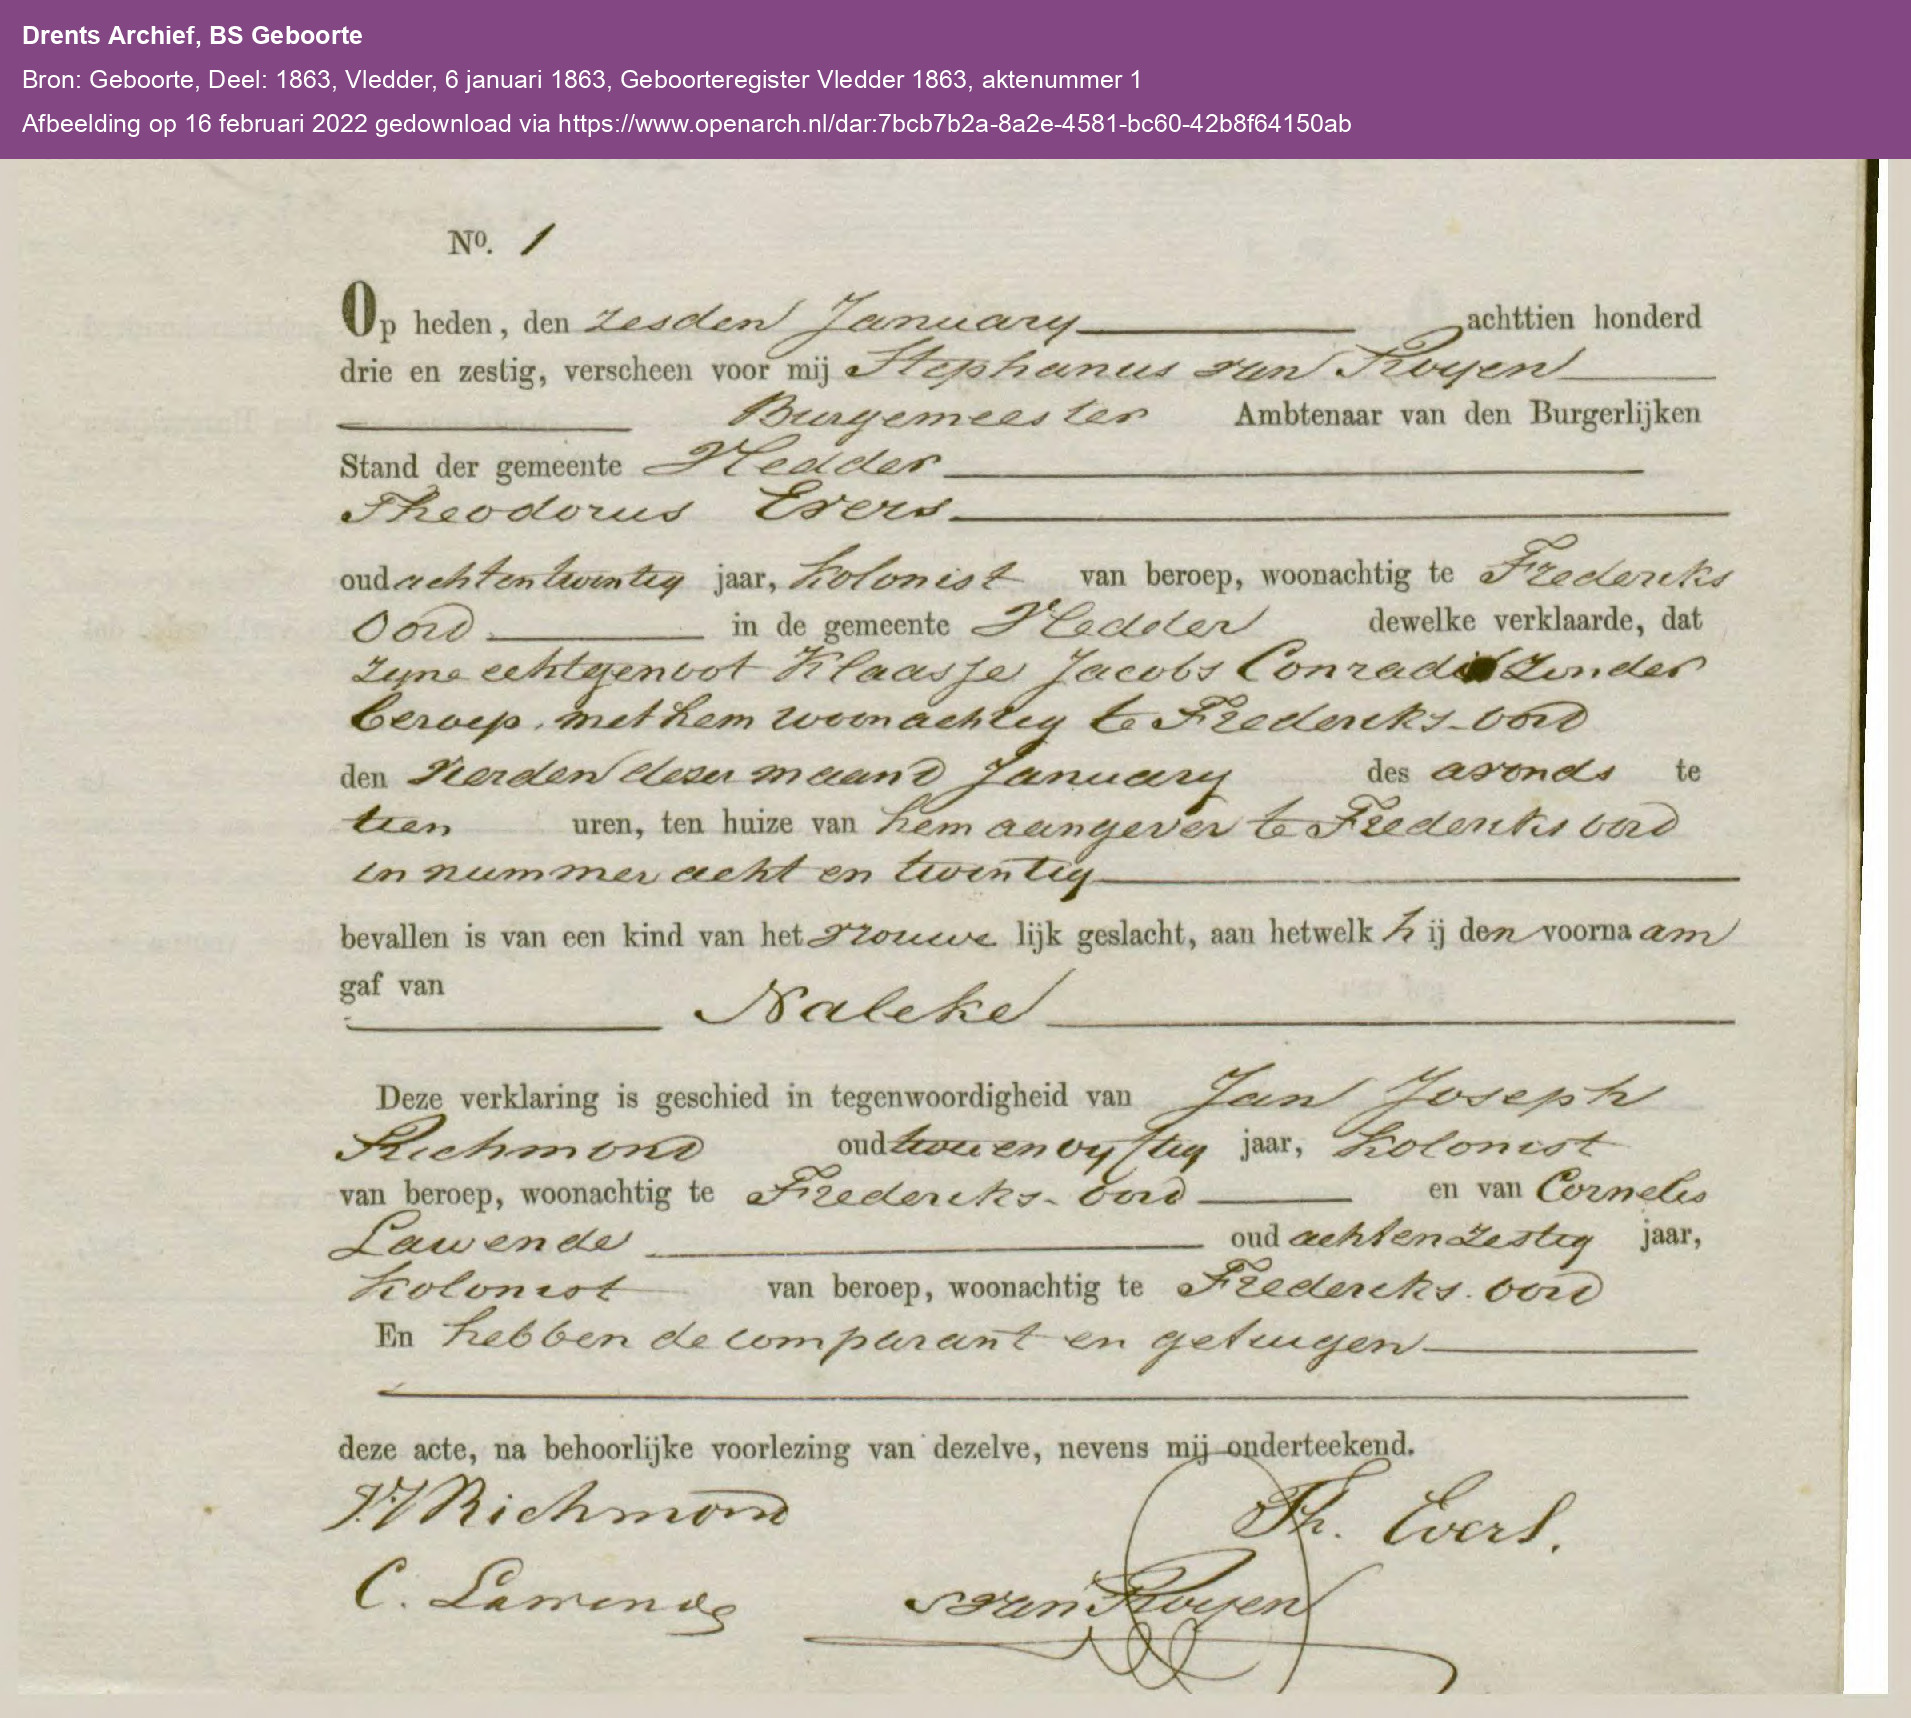 Drents Archief, BS Geboorte
Bron: Geboorte, Deel: 1863, Vledder, 6 januari 1863, Geboorteregister Vledder 1863, aktenummer 1
Afbeelding op 16 februari 2022 gedownload via https://www.openarch.nl/dar:7bcb7b2a-8a2e-4581-bc60-42b8f64150ab
No. 1
Op heden, den zesden January achttien honderd
drie en zestig, verscheen voor mij Stephanus van Royen
Burgemeester Ambtenaar van den Burgerlijken
Stand der gemeente Vledder
Theodorus Evers
oud achtentwintig jaar, Kolonist van beroep, woonachtig te Frederiks
Oord in de gemeente Vledder dewelke verklaarde, dat
zyne echtgenoot Klaasje Jacobs Conradi zonder
beroep, met hem woonachtig te Frederiks-oord
den vierden dezer maand January des avonds te
tien uren, ten huize van hem aangever te Frederiks oord
in nummer acht en twintig
bevallen is van een kind van het vrouwe lijk geslacht, aan hetwelk hij den voornaam
gaf van
Naleke
Deze verklaring is geschied in tegenwoordigheid van Jan Joseph
Richmond oud twee en vyftig jaar, Kolonist
van beroep, woonachtig te Frederiks-oord en van Cornelis
Lawende oud achtenzestig jaar,
Kolonist van beroep, woonachtig te Frederiks-oord
En hebben de comparant en getuigen
deze acte, na behoorlijke voorlezing van dezelve, nevens mij onderteekend.
JJ Richmond Th. Evers.
C. Lawende SvanRoyen